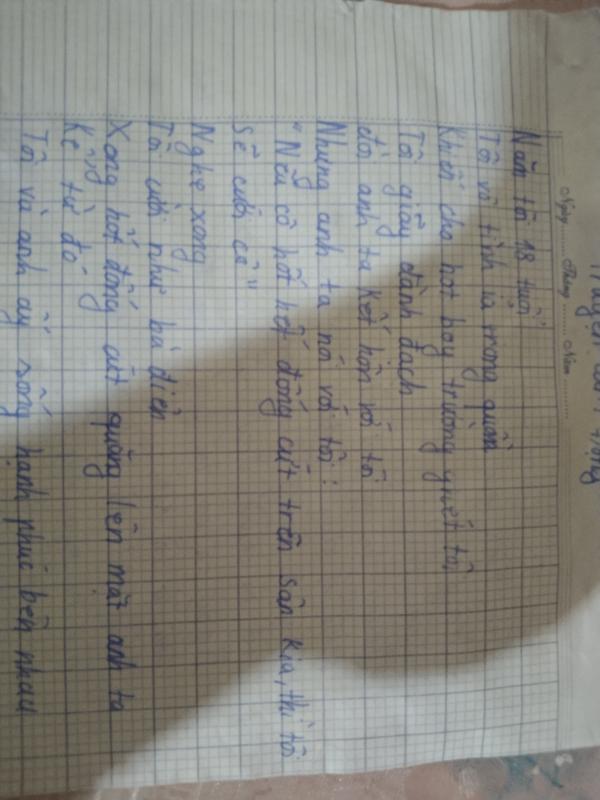 Ngày ........ Tháng ........ Năm ........
Năm tôi 18 tuổi
Tôi vô tình ỉa trong quần
Khiến cho hot boy trường ghét tôi
Tôi giãy đành đạch
đòi anh ta kết hôn với tôi
Nhưng anh ta nói với tôi:
"Nếu cô hốt hết đống cứt trên sân kia, thì tôi
sẽ cưới cô"
Nghe xong
Tôi cười như bà điên
Xong hốt đống cứt quăng lên mặt anh ta
Kể từ đó
Tôi và anh ấy sống hạnh phúc bên nhau